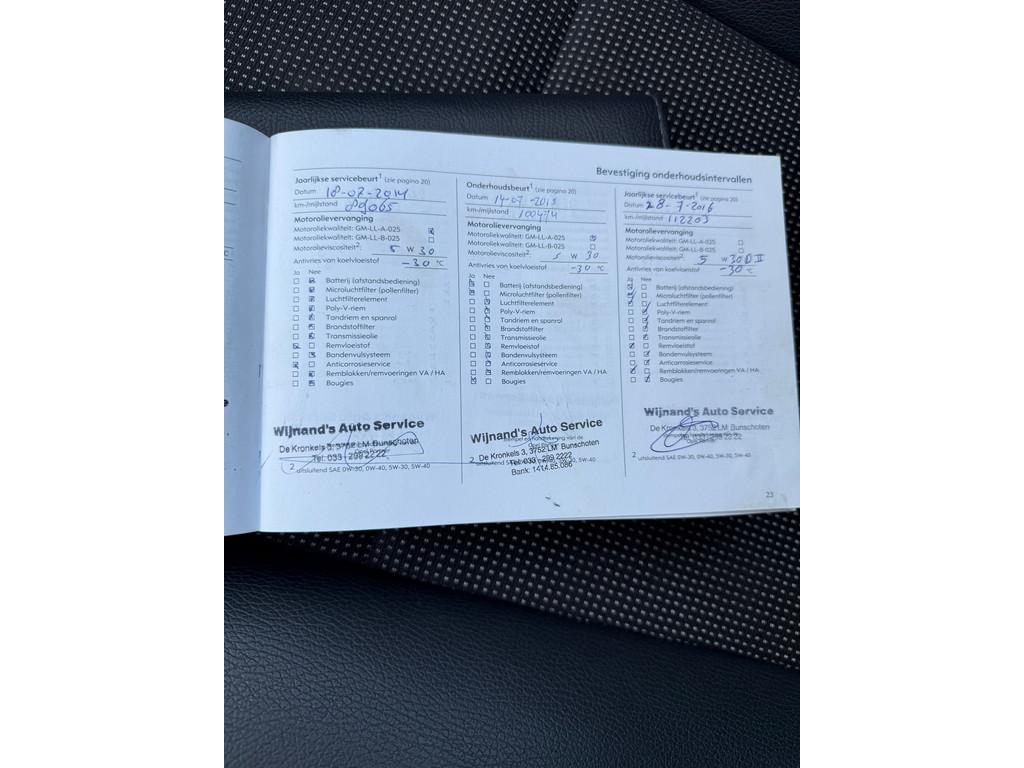 Bevestiging onderhoudsintervallen
Jaarlijkse servicebeurt¹ (zie pagina 20)
Datum 18-02-2014
km-/mijlstand 89065
Motorolievervanging
Motoroliekwaliteit: GM-LL-A-025
Motoroliekwaliteit: GM-LL-B-025
Motorolieviscositeit²: 5 W 30
Antivries van koelvloeistof -30 °C
Ja Nee
Batterij (afstandsbediening)
Microluchtfilter (pollenfilter)
Luchtfilterelement
Poly-V-riem
Tandriem en spanrol
Brandstoffilter
Transmissieolie
Remvloeistof
Bandenvulsysteem
Anticorrosieservice
Remblokken/remvoeringen VA / HA
Bougies
Wijnand's Auto Service
De Kronkels 3, 3752 LM Bunschoten
Tel: 033 - 299 2222
2 uitsluitend SAE 0W-30, 0W-40, 5W-30, 5W-40
Onderhoudsbeurt¹ (zie pagina 20)
Datum 14-07-2015
km-/mijlstand 100474
Motorolievervanging
Motoroliekwaliteit: GM-LL-A-025
Motoroliekwaliteit: GM-LL-B-025
Motorolieviscositeit²: 5 W 30
Antivries van koelvloeistof -30 °C
Ja Nee
Batterij (afstandsbediening)
Microluchtfilter (pollenfilter)
Luchtfilterelement
Poly-V-riem
Tandriem en spanrol
Brandstoffilter
Transmissieolie
Remvloeistof
Bandenvulsysteem
Anticorrosieservice
Remblokken/remvoeringen VA / HA
Bougies
Wijnand's Auto Service
Stempel en handtekening van de
De Kronkels 3, 3752 LM Bunschoten
Tel: 033 - 299 2222
2 uitsluitend 30, 5W-40
Bank: 1414.85.086
Jaarlijkse servicebeurt¹ (zie pagina 20)
Datum 28-7-2016
km-/mijlstand 112203
Motorolievervanging
Motoroliekwaliteit: GM-LL-A-025
Motoroliekwaliteit: GM-LL-B-025
Motorolieviscositeit²: 5 W 30 D II
Antivries van koelvloeistof -30 °C
Ja Nee
Batterij (afstandsbediening)
Microluchtfilter (pollenfilter)
Luchtfilterelement
Poly-V-riem
Tandriem en spanrol
Brandstoffilter
Transmissieolie
Remvloeistof
Bandenvulsysteem
Anticorrosieservice
Remblokken/remvoeringen VA / HA
Bougies
Wijnand's Auto Service
De Kronkels 3, 3752 LM Bunschoten
2 uitsluitend SAE 0W-30, 0W-40, 5W-30, 5W-40
23